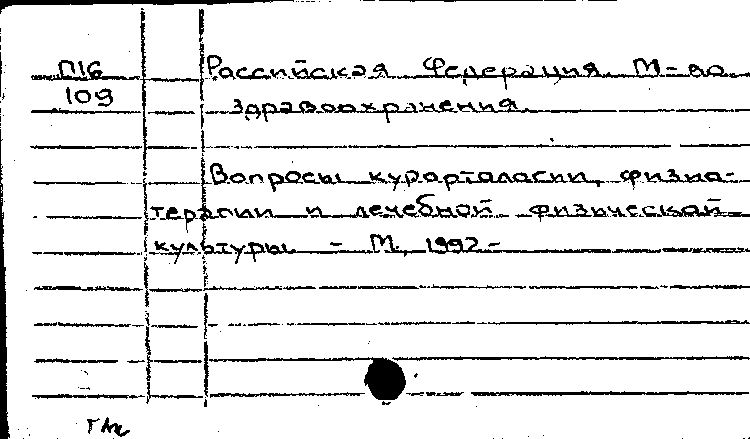 П16
109
Российская Федерация. М-во
здравоохранения.
Вопросы курортологии, физио-
терапии и лечебной физической
культуры - М., 1992-